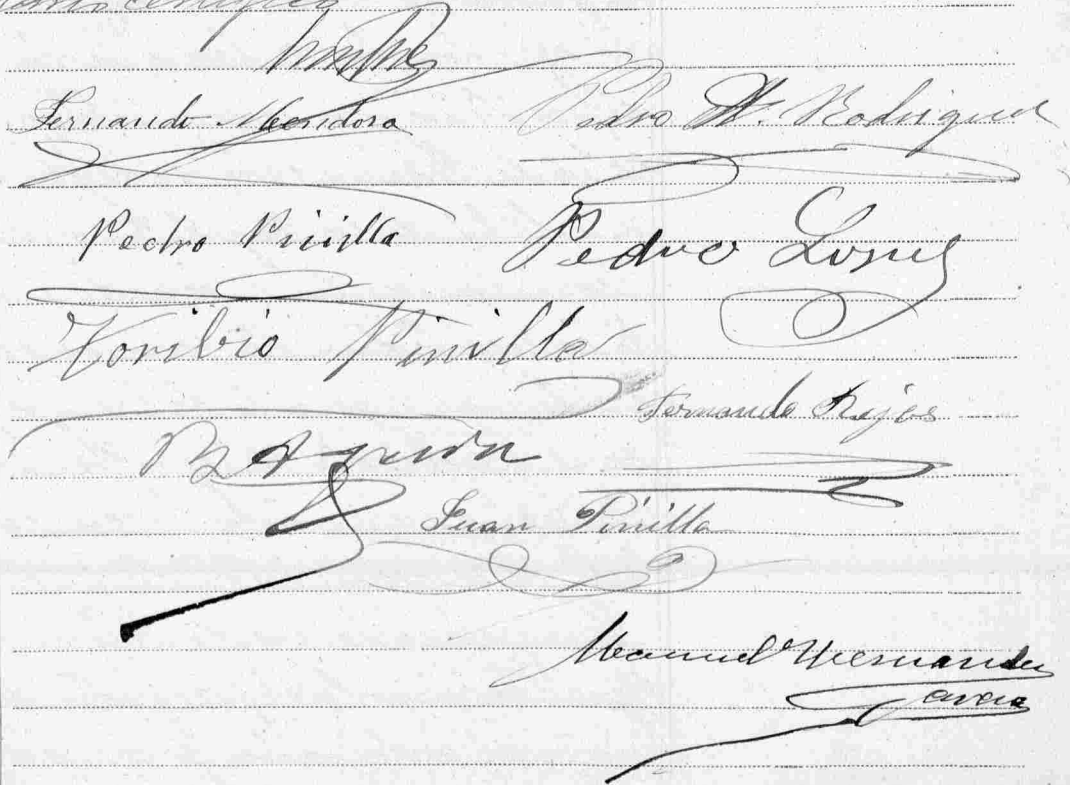 certifica
Fernando Mendoza
Pedro Rodriguez
Pedro Pinilla
Pedro Lopez
Toribio Pinilla
Fernando Rojas
Juan Pinilla
Manuel Hernandez
Garcia